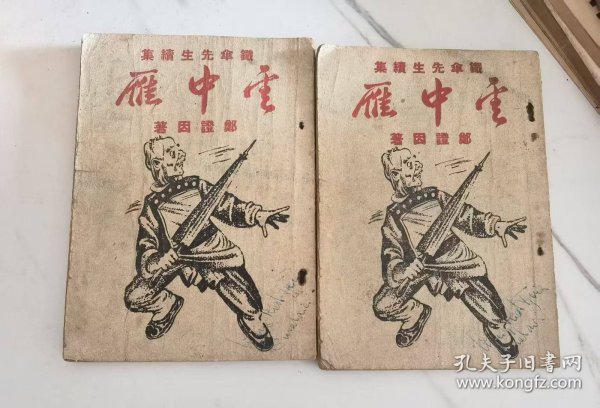 鐵傘先生續集
雲中雁
鄭證因著
鐵傘先生續集
雲中雁
鄭證因著
孔夫子旧书网
www.kongfz.com